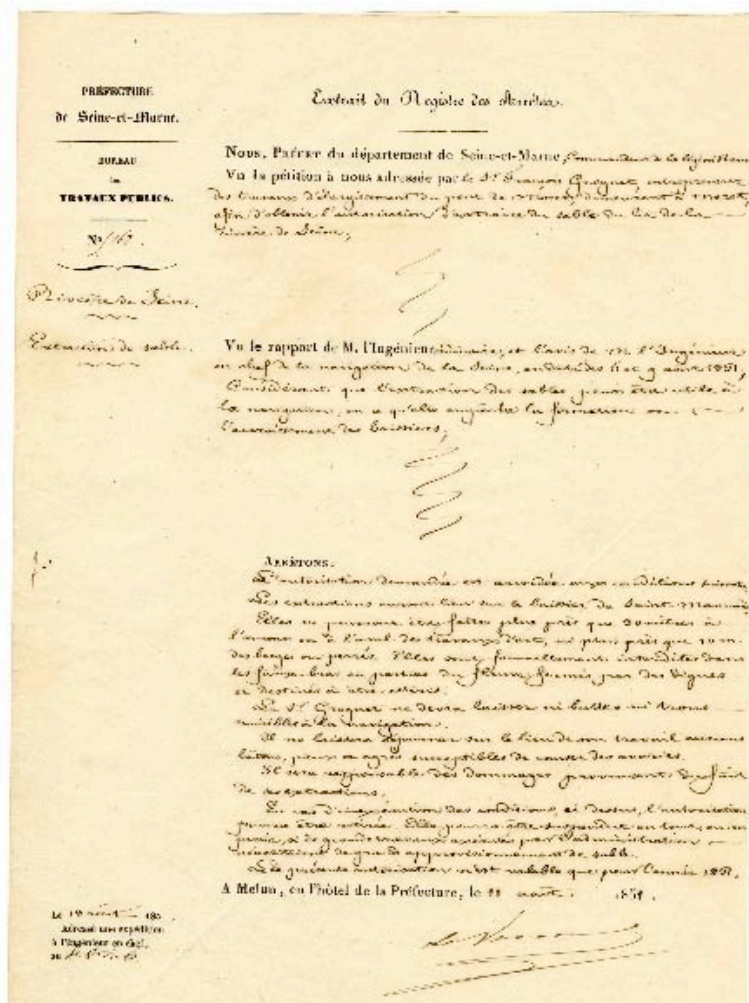 PRÉFECTURE
de Seine-et-Marne.
BUREAU
des
TRAVAUX PUBLICS.
No
Rivière de Seine.
Extraction de sable.
Extrait du Registre des Arrêtés.
Nous, Préfet du département de Seine-et-Marne, Commandeur de la Légion
Vu la pétition à nous adressée par le Sr François entrepreneur
des travaux d'élargissement du pont de demeurant à Moret,
afin d'obtenir l'autorisation d'extraire du sable du lit de la
rivière de Seine;
Vu le rapport de M. l'Ingénieur ordinaire, et l'avis de M. l'Ingénieur
en chef de la navigation de la Seine, en date des et 9 août 1851,
Considérant que l'extraction des sables peut être utile à
la navigation, en ce qu'elle la formation ou
l'accroissement des
ARRÊTONS:
L'autorisation demandée est accordée aux conditions
Les extractions auront lieu sur le de Saint-Mammès
Elles ne pourront être faites plus près que mètres à
l'amont ou à l'aval des travaux d'art, ni plus près que 10 m.
des berges ou perrés. Elles sont formellement interdites dans
les faux-bras ou parties du fleuve fermés par des digues
et destinés à être
Le Sr ne devra laisser ni buttes ni
nuisibles à la navigation.
Il ne laissera séjourner sur le lieu de son travail aucuns
pieux ou agrès susceptibles de causer des avaries.
Il sera responsable des dommages provenant du fait
de ses extractions.
En cas d'inexécution des conditions ci-dessus, l'autorisation
pourra être retirée. Elle pourra être suspendue en tout ou en
partie, si de grands travaux exécutés par l'administration
de grands approvisionnements de sable.
La présente autorisation n'est valable que pour l'année 1851.
A Melun, en l'hôtel de la Préfecture, le 11 août 1851.
Le août 185
Adressé une expédition
à l'Ingénieur en chef,